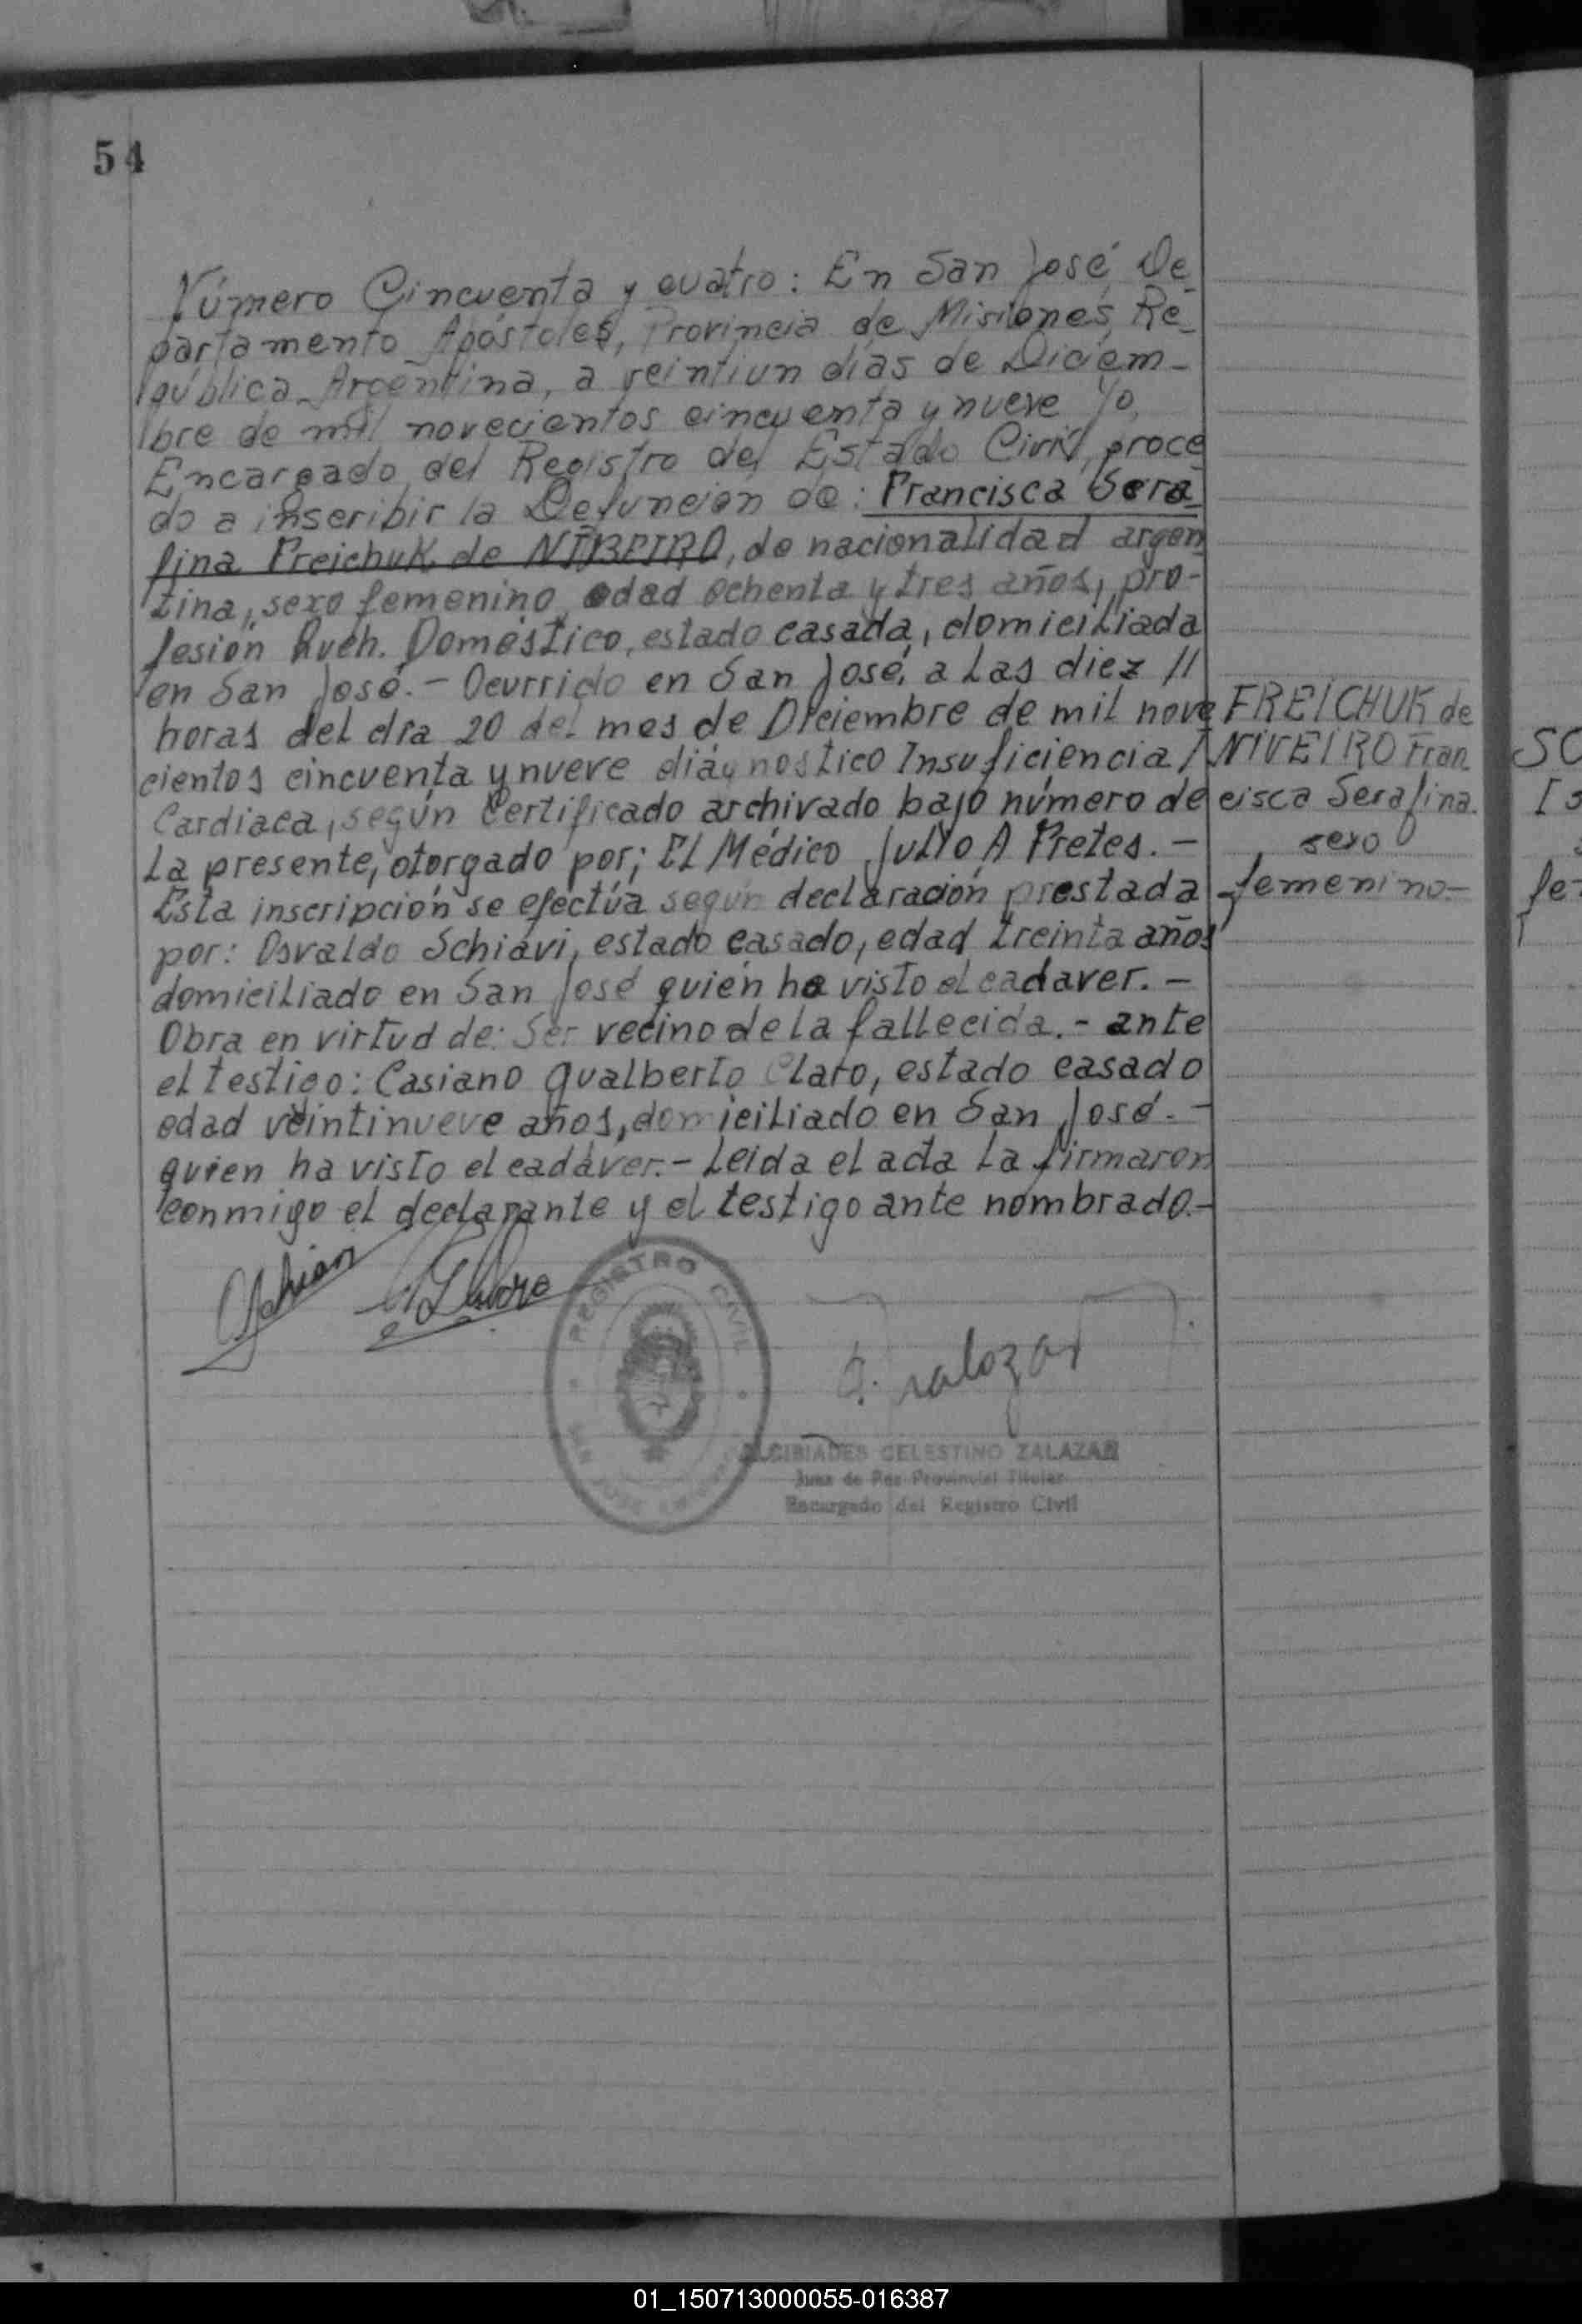 54
Número Cincuenta y cuatro: En San José, De-
partamento Apóstoles, Provincia de Misiones, Re-
pública Argentina, a veintiun días de Diciem-
bre de mil novecientos cincuenta y nueve Yo,
Encargado del Registro del Estado Civil, proce
do a inscribir la Defunción de: Francisca Sera
fina Freichuk de , de nacionalidad argen
tina, sexo femenino, edad ochenta y tres años, pro-
fesión Queh. Doméstico, estado casada, domiciliada
en San José.- Ocurrido en San José, a las diez //
horas del día 20 del mes de Diciembre de mil nove
cientos cincuenta y nueve diágnostico Insuficiencia /
Cardiaca, según Certificado archivado bajo número de
la presente, otorgado por; El Médico Julio A Fretes.-
Esta inscripción se efectúa según declaración prestada
por: Osvaldo Schiavi, estado casado, edad treinta años
domiciliado en San José quién ha visto el cadaver.-
Obra en virtud de: Ser vecino de la fallecida.- ante
el testigo: Casiano Gualberto , estado casado
edad veintinueve años, domiciliado en San José.-
quien ha visto el cadáver.- Leida el acta la firmaron
conmigo el declarante y el testigo ante nombrado.-
FREICHUK de
NIVEIRO Fran
cisca Serafina.
sexo
femenino.-
SO
fe-
REGISTRO CIVIL
ALCIBIADES CELESTINO ZALAZAR
Juez de Paz Provincial Titular
Encargado del Registro Civil
01_150713000055-016387